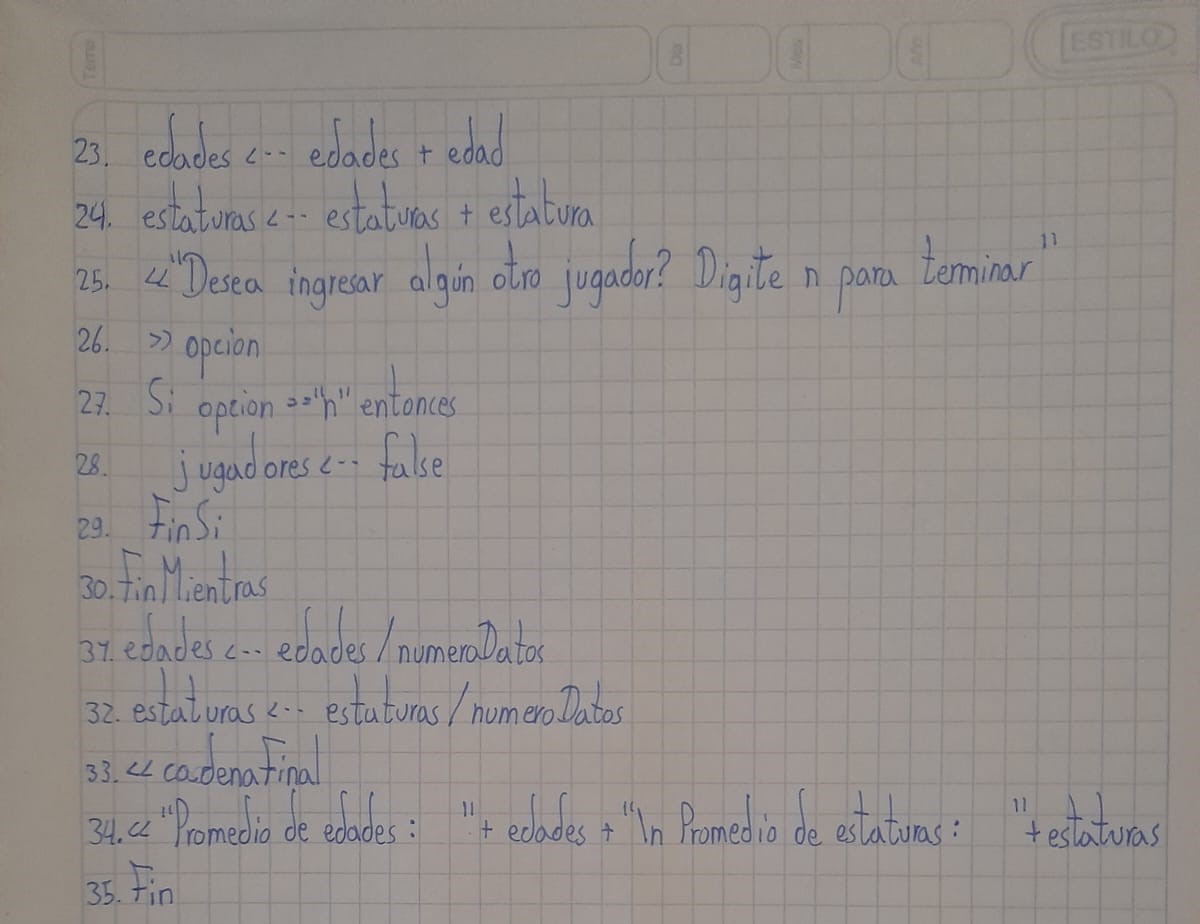 Tema Día Mes Año ESTILO
23. edades <-- edades + edad
24. estaturas <-- estaturas + estatura
25. <<"Desea ingresar algún otro jugador? Digite n para terminar"
26. >> opcion
27. Si opcion =="n" entonces
28. jugadores <-- false
29. FinSi
30. FinMientras
31. edades <-- edades/numeroDatos
32. estaturas <-- estaturas/numeroDatos
33. << cadenaFinal
34. << "Promedio de edades: "+ edades + "\n Promedio de estaturas: "+ estaturas
35. Fin